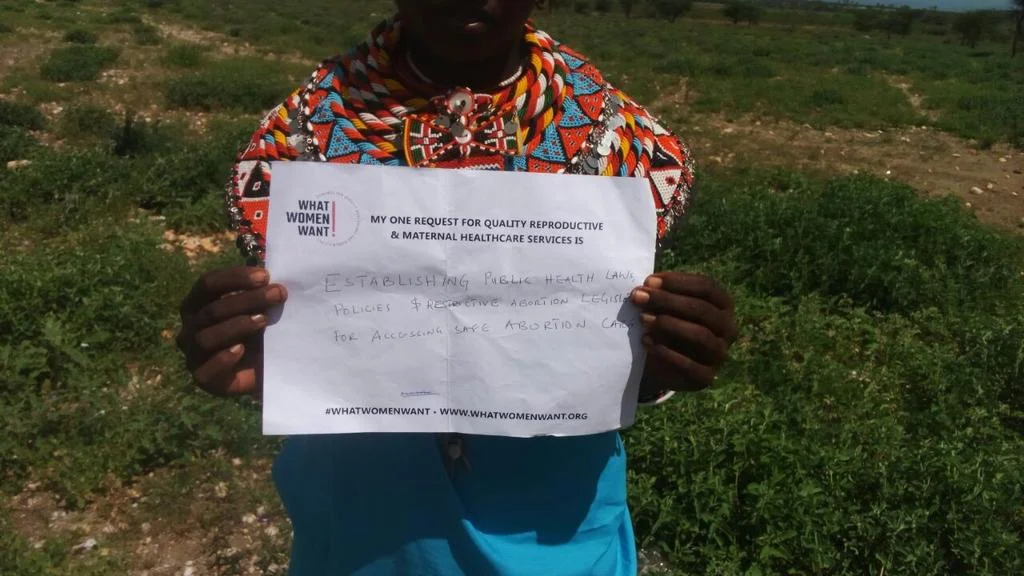 WHAT
WOMEN
WANT!
MY ONE REQUEST FOR QUALITY REPRODUCTIVE
& MATERNAL HEALTHCARE SERVICES IS
ESTABLISHING PUBLIC HEALTH LAWS
POLICIES & RESTRICTIVE ABORTION
FOR ACCESSING SAFE ABORTION
#WHATWOMENWANT - WWW.WHATWOMENWANT.ORG